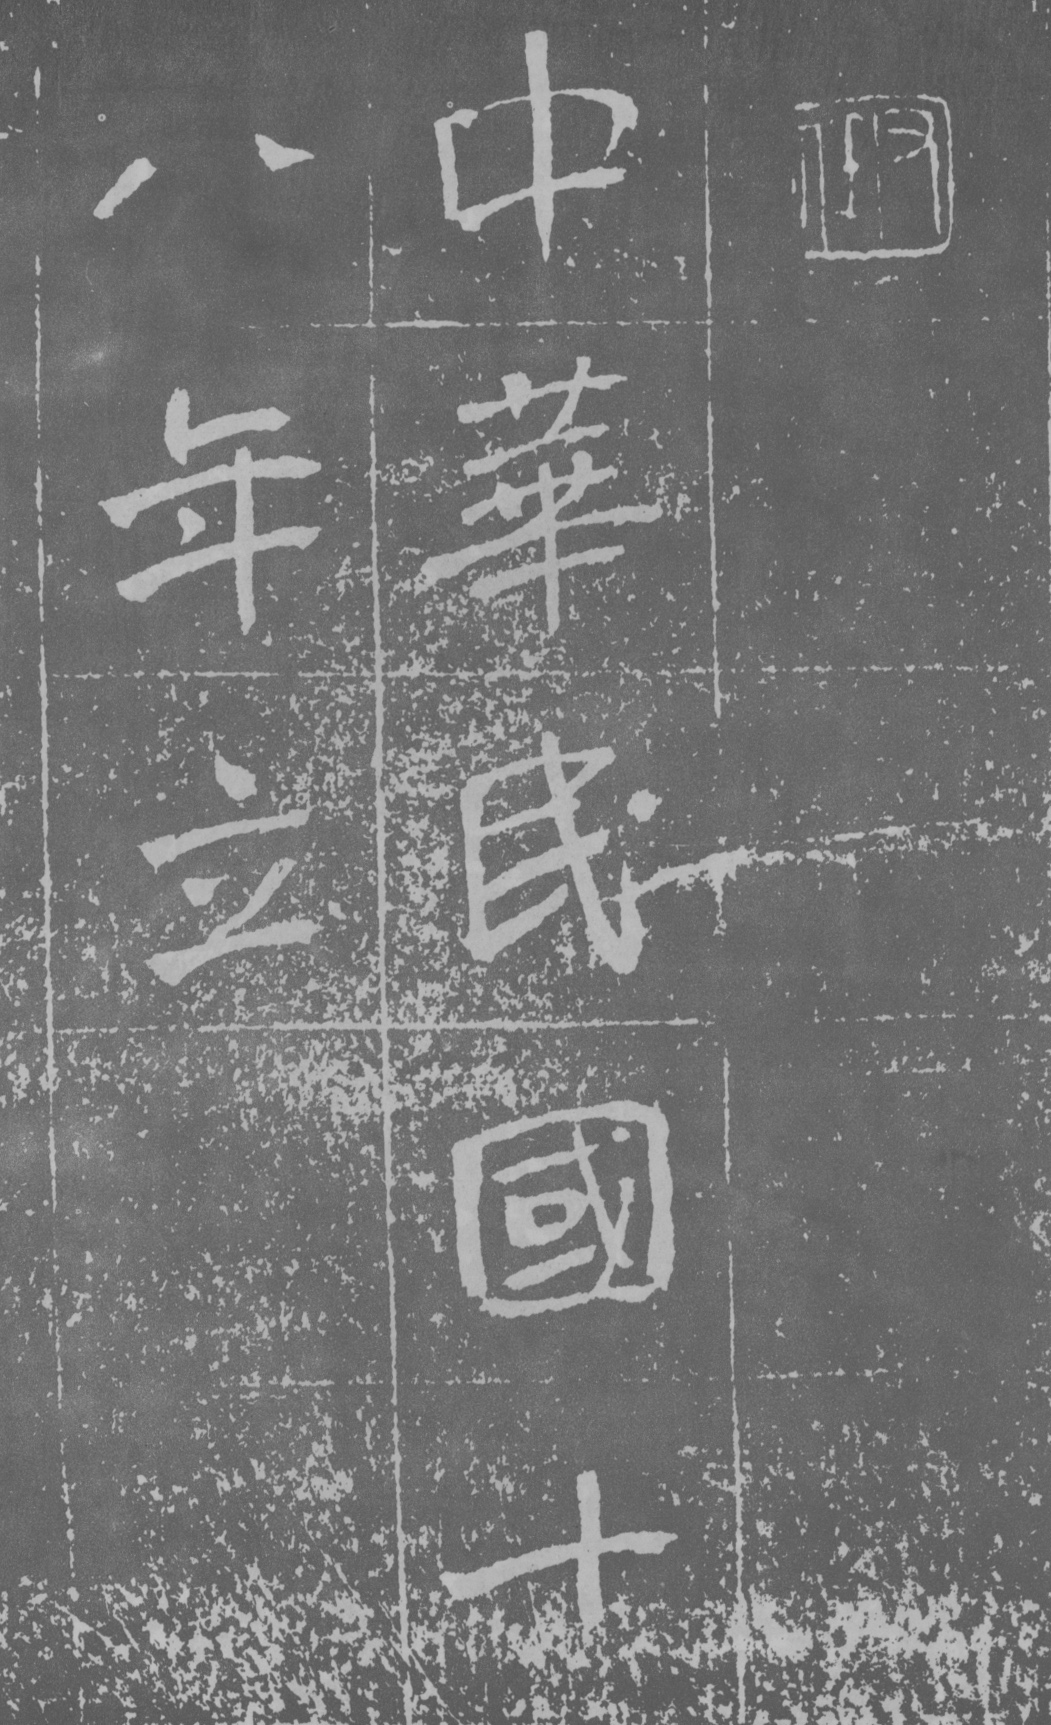 中華民國十
八年立